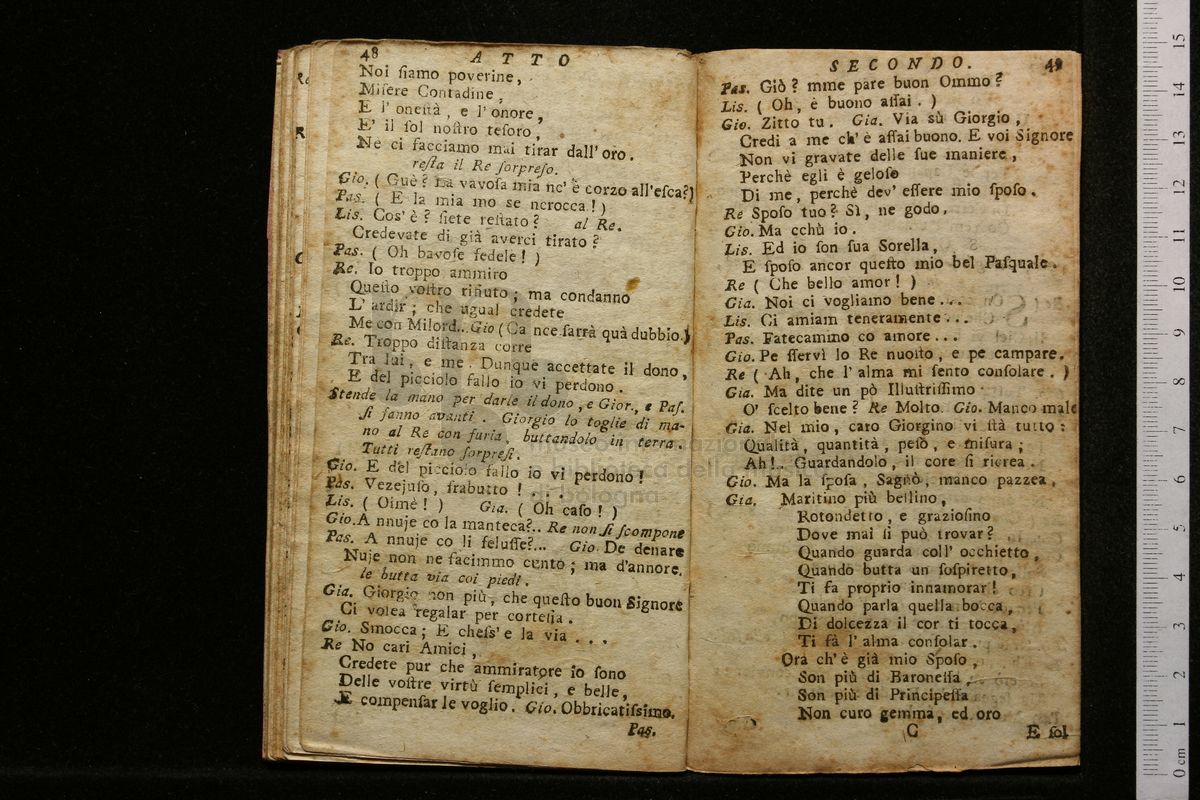 48 ATTO
Noi ſiamo poverine,
Miſere Contadine,
E l' oneſtà, e l' onore,
E' il ſol noſtro teſoro,
Ne ci facciamo mai tirar dall' oro.
reſta il Re ſorpreſo.
Gio. ( Guè? La vavoſa mia nc' è corzo all'eſca?)
Pas. ( E la mia mo se ncrocca! )
Lis. Cos' è? ſiete reſtato? al Re.
Credevate di già averci tirato?
Pas. ( Oh bavoſe fedele! )
Re. Io troppo ammiro
Queſto voſtro rifiuto; ma condanno
L' ardir; che ugual credete
Me con Milord.. Gio (Ca nce farrà quà dubbio.)
Re. Troppo diſtanza corre
Tra lui, e me. Dunque accettate il dono,
E del picciolo fallo io vi perdono.
Stende la mano per darle il dono, e Gior., e Paſ.
ſi fanno avanti. Giorgio lo toglie di ma-
no al Re con furia, buttandolo in terra.
Tutti reſtano ſorpreſi.
Gio. E del picciolo fallo io vi perdono!
Pas. Vezejuſo, frabutto!
Lis. ( Oimè! ) Gia. ( Oh caſo! )
Gio. A nnuje co la manteca?.. Re non ſi ſcompone
Pas. A nnuje co li feluſſe?... Gio. De denare
Nuje non ne facimmo cunto; ma d'annore.
le butta via coi piedi.
Gia. Giorgio non più, che queſto buon Signore
Ci volea regalar per corteſia.
Gio. Smocca; E cheſs' e la via ...
Re No cari Amici,
Credete pur che ammiratore io ſono
Delle voſtre virtù ſemplici, e belle,
E compenſar le voglio. Gio. Obbricatiſsimo.
Pas.
SECONDO. 49
Pas. Giò? mme pare buon Ommo?
Lis. ( Oh, è buono aſſai. )
Gio. Zitto tu. Gia. Via sù Giorgio,
Credi a me ch' è aſſai buono. E voi Signore
Non vi gravate delle ſue maniere,
Perchè egli è geloſo
Di me, perchè dev' eſſere mio ſpoſo.
Re Spoſo tuo? Sì, ne godo.
Gio. Ma cchù io.
Lis. Ed io ſon ſua Sorella,
E ſpoſo ancor queſto mio bel Paſquale.
Re ( Che bello amor! )
Gia. Noi ci vogliamo bene...
Lis. Ci amiam teneramente...
Pas. Fatecammo co amore...
Gio. Pe ſſervì lo Re nuoſto, e pe campare.
Re ( Ah, che l' alma mi ſento conſolare. )
Gia. Ma dite un pò Illuſtriſſimo
O' ſcelto bene? Re Molto. Gio. Manco male
Gia. Nel mio, caro Giorgino vi ſtà tutto:
Qualità, quantità, peſo, e miſura;
Ah!.. Guardandolo, il core ſi ricrea.
Gio. Ma la ſpoſa, Sagnò, manco pazzea,
Gia. Maritino più bellino,
Rotondetto, e grazioſino
Dove mai ſi può trovar?
Quando guarda coll' occhietto,
Quando butta un ſoſpiretto,
Ti fa proprio innamorar!
Quando parla quella bocca,
Di dolcezza il cor ti tocca,
Ti fà l' alma conſolar.
Ora ch' è già mio Spoſo,
Son più di Baroneſſa,
Son più di Principeſſa
Non curo gemma, ed oro
C E ſol
0 cm 1 2 3 4 5 6 7 8 9 10 11 12 13 14 15